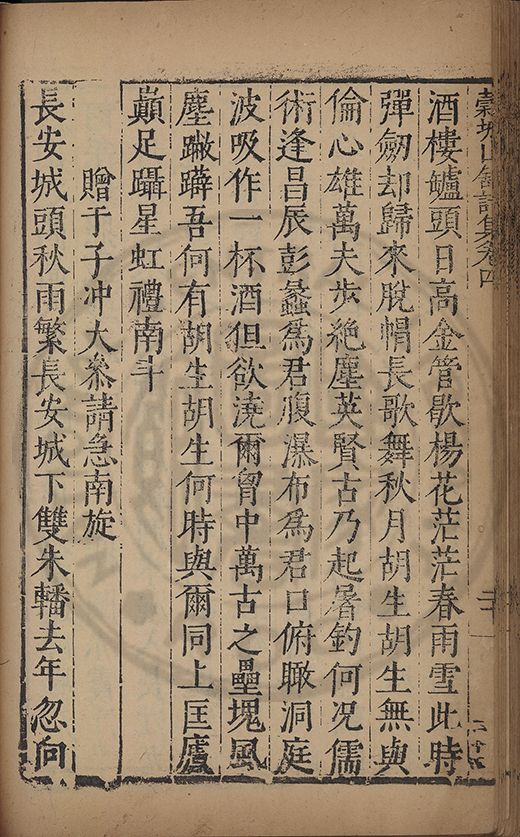 穀城山館詩集卷四
酒樓鱸頭日高金管歇楊花茫茫春雨雪此時
彈劒却歸來脫帽長歌舞秋月胡生胡生無與
倫心雄萬夫步絶塵英賢古乃起屠釣何况儒
術逢昌辰彭蠡爲君腹瀑布爲君口俯瞰洞庭
波吸作一杯酒狙欲澆爾胷中萬古之壘塊風
塵蹩躃吾何有胡生胡生何時與爾同上匡廬
巔足躡星虹禮南斗
贈于子冲大叅請急南旋
長安城頭秋雨繁長安城下雙朱轓去年忽向